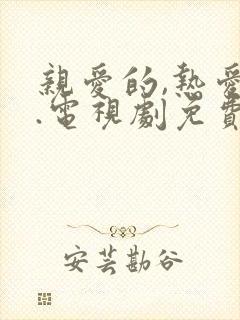 親愛的,熱愛
.電視劇免費
安芸勘谷